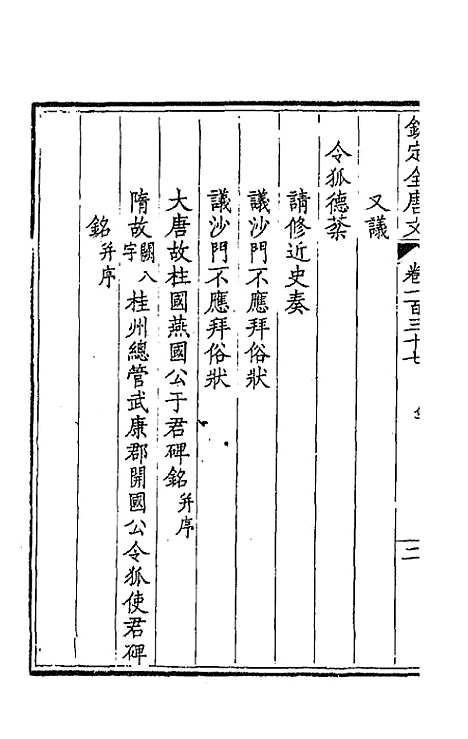 欽定全唐文 卷一百三十七 二
又議
令狐德棻
請修近史奏
議沙門不應拜俗狀
議沙門不應拜俗狀
大唐故柱國燕國公于君碑銘并序
隋故闕八字桂州總管武康郡開國公令狐使君碑
銘并序